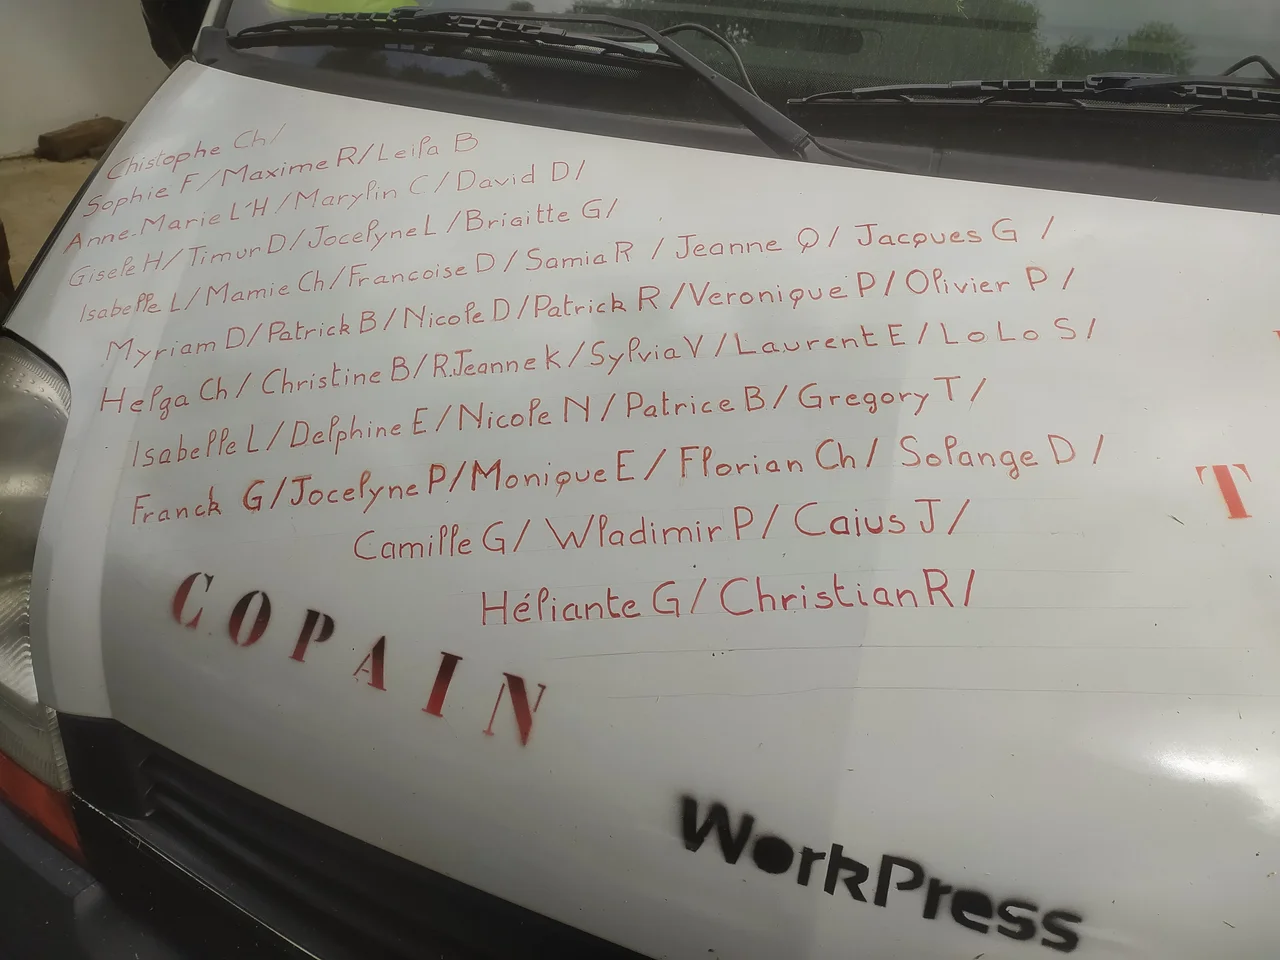 Chistophe Ch/
Sophie F/Maxime R/Leila B
Anne-Marie L'H/Marylin C/David D/
Gisele H/Timur D/Jocelyne L/Brigitte G/
Isabelle L/Mamie Ch/Francoise D/Samia R/Jeanne Q/Jacques G/
Myriam D/Patrick B/Nicole D/Patrick R/Veronique P/Olivier P/
Helga Ch/Christine B/R.Jeanne K/Sylvia V/Laurent E/LoLo S/
Isabelle L/Delphine E/Nicole N/Patrice B/Gregory T/
Franck G/Jocelyne P/Monique E/Florian Ch/Solange D/
Camille G/Wladimir P/Caius J/
Héliante G/Christian R/
T
COPAIN
WorkPress